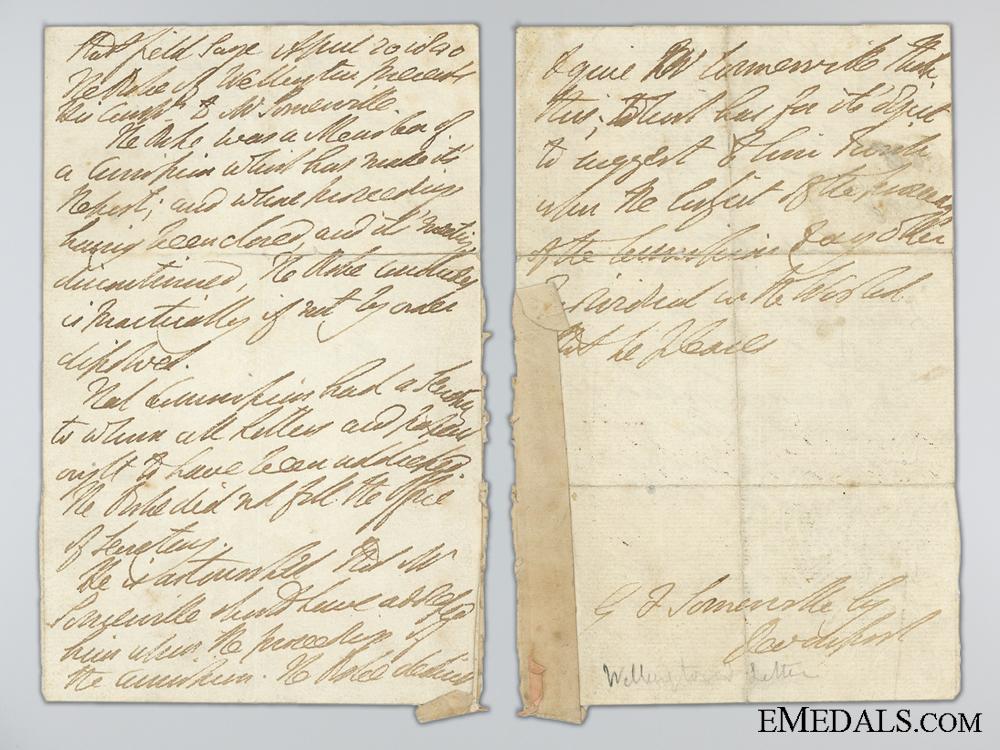 Strathfield Saye April 20 1840
The Duke of Wellington presents
His Compts to Mr Somerville.
The Duke was a Member of
a Commission which has made its
Report; and whose proceedings
having been closed, and its meetings
discontinued, The Duke concludes
is practically if not by order
dissolved.
That Commission had a Secretary
to whom all Letters and Papers
ought to have been addressed.
The Duke did not fill the office
of Secretary.
He is astonished that Mr
Somerville should have addressed
him upon the proceedings of
the Commission. The Duke declines
to give Mr Somerville
this; which has for its object
to suggest to him to
upon the Subject of the proceedings
of the Commission to any other
Individual in the World
that he pleases
G F Somerville Esq
Devonport
Wellington's Letter
EMEDALS.COM